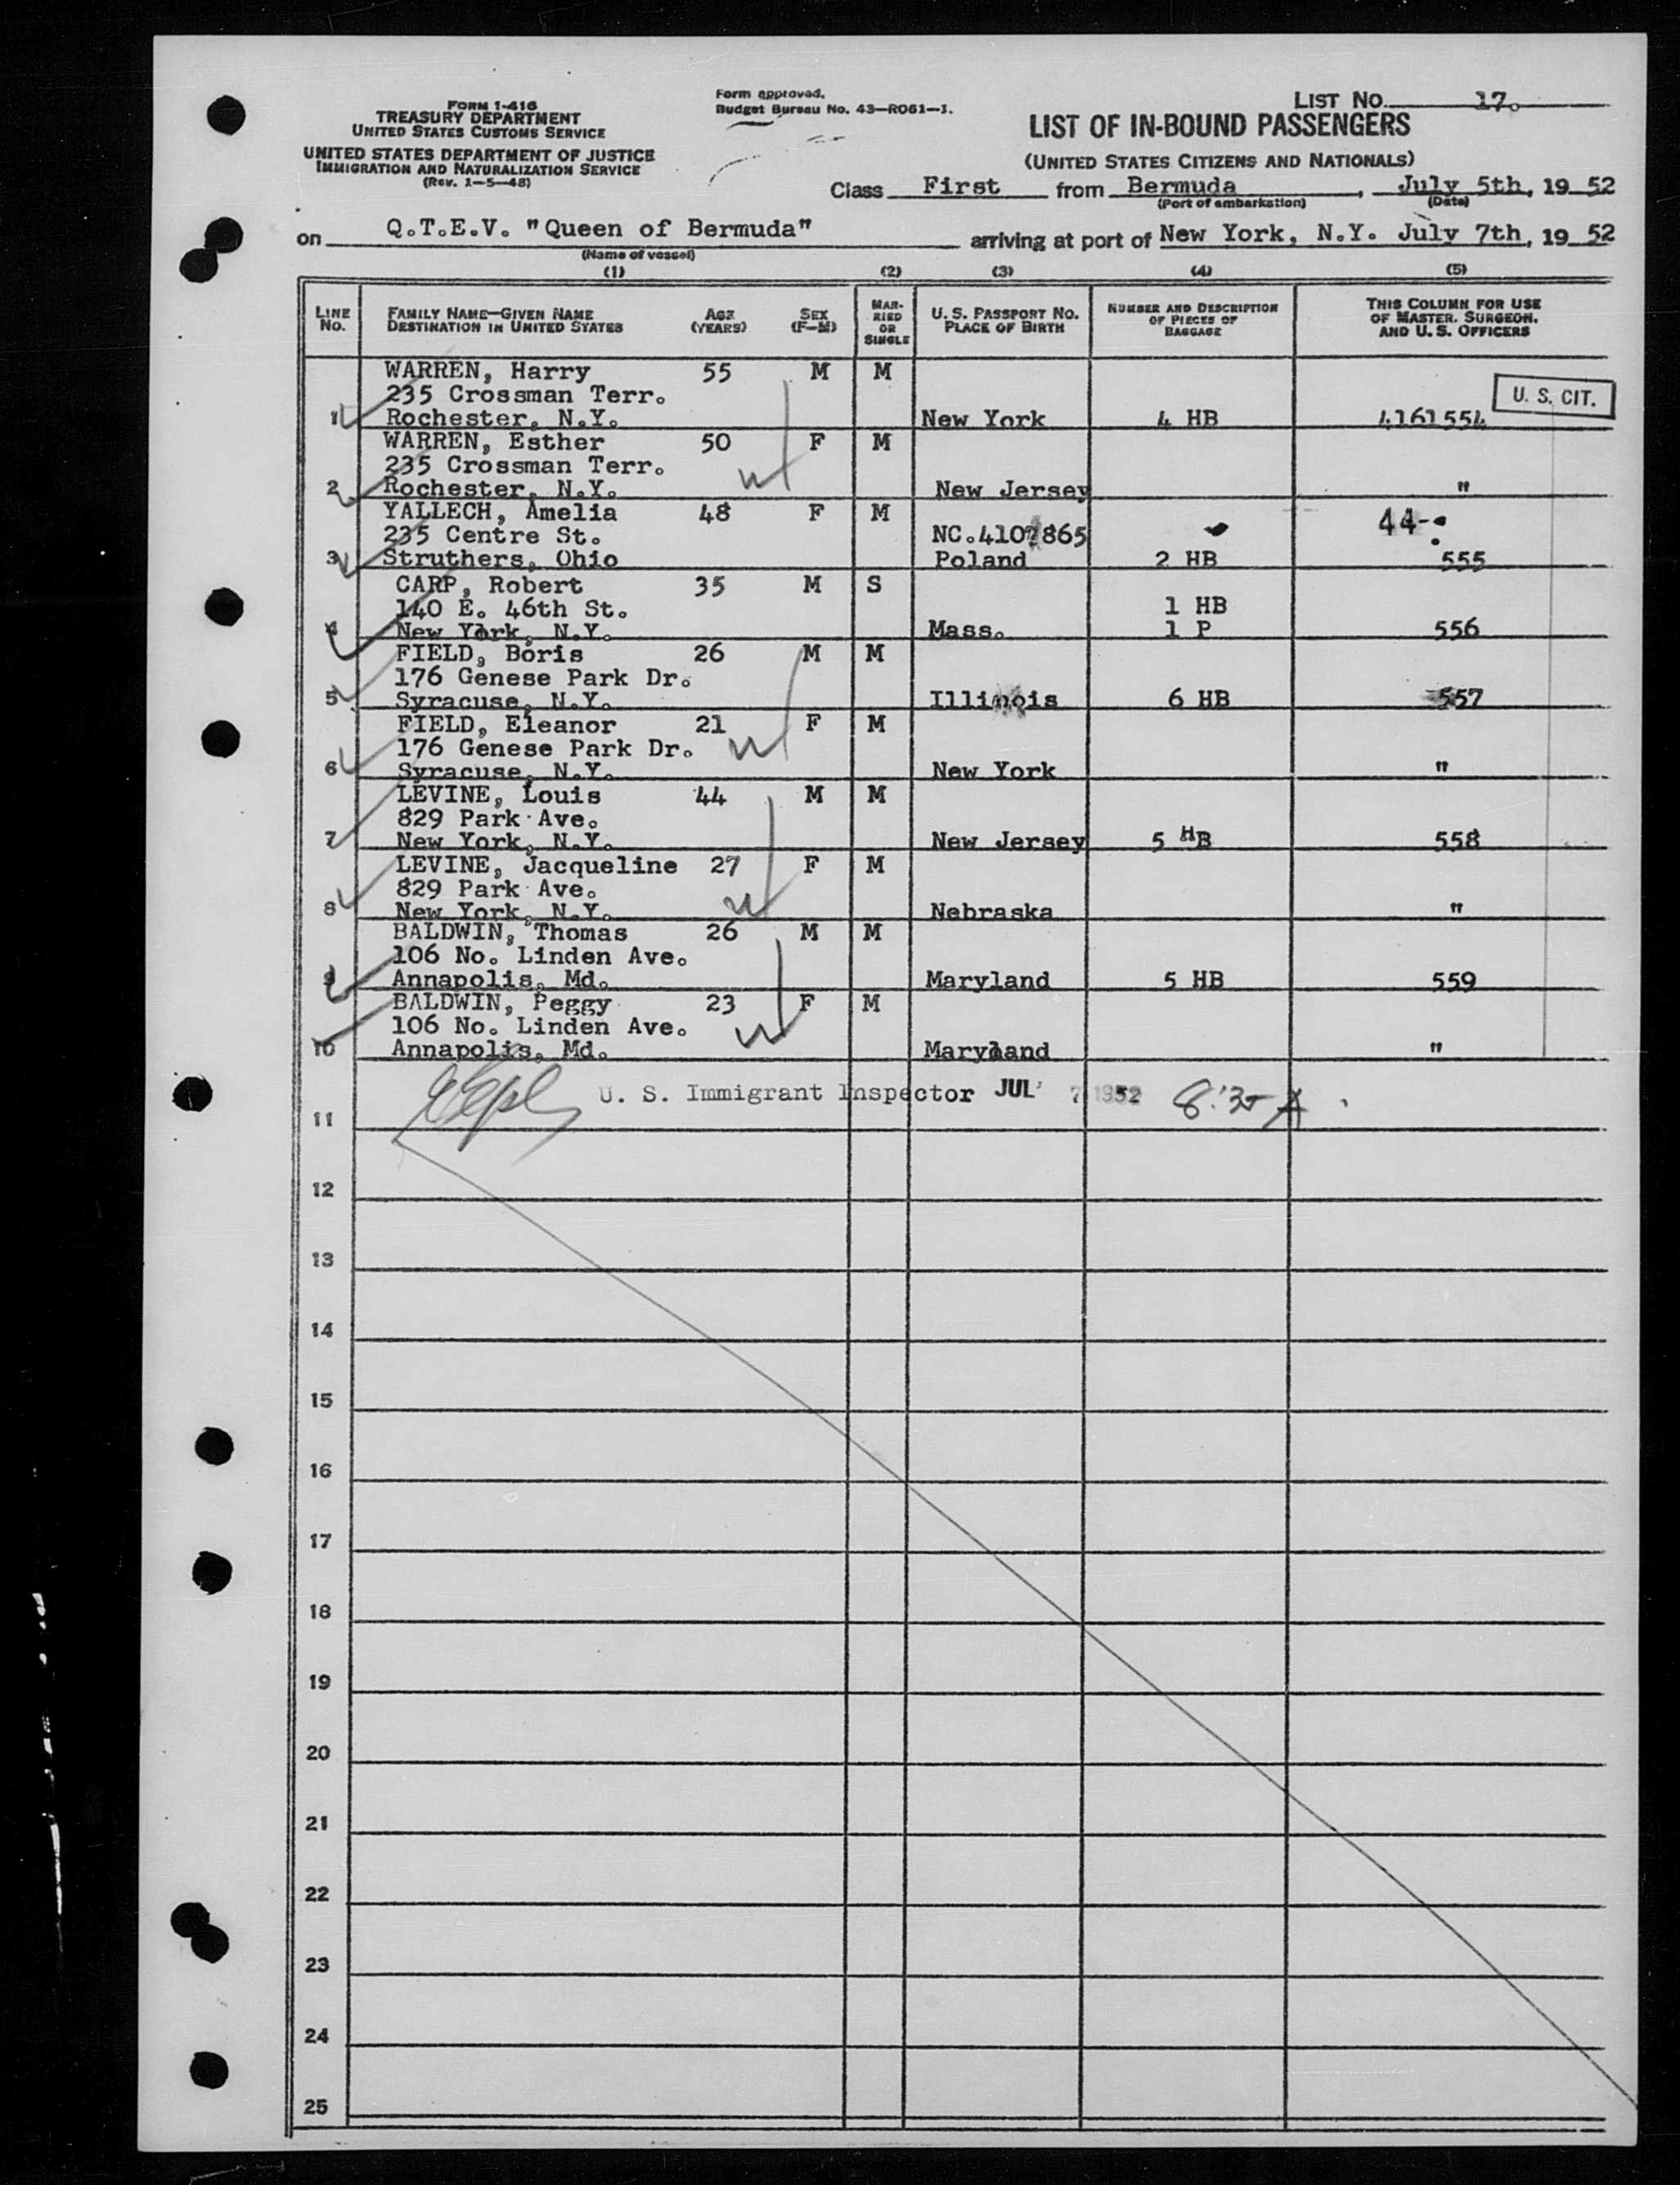 FORM I-416
TREASURY DEPARTMENT
UNITED STATES CUSTOMS SERVICE
UNITED STATES DEPARTMENT OF JUSTICE
IMMIGRATION AND NATURALIZATION SERVICE
(Rev. 1-5-48)
Form approved.
Budget Bureau No. 43—RO61—1.
LIST NO. 17.
LIST OF IN-BOUND PASSENGERS
(UNITED STATES CITIZENS AND NATIONALS)
Class First from Bermuda, July 5th, 19 52
(Port of embarkation) (Date)
on Q.T.E.V. "Queen of Bermuda" arriving at port of New York, N.Y. July 7th, 19 52
(Name of vessel)
(1) (2) (3) (4) (5)
LINE No. FAMILY NAME—GIVEN NAME DESTINATION IN UNITED STATES AGE (YEARS) SEX (F—M) MARRIED OR SINGLE U. S. PASSPORT NO. PLACE OF BIRTH NUMBER AND DESCRIPTION OF PIECES OF BAGGAGE THIS COLUMN FOR USE OF MASTER, SURGEON, AND U. S. OFFICERS
WARREN, Harry 55 M M
235 Crossman Terr. U. S. CIT.
1 Rochester, N.Y. New York 4 HB 4161554
WARREN, Esther 50 F M
235 Crossman Terr.
2 Rochester, N.Y. New Jersey "
YALLECH, Amelia 48 F M 44-
235 Centre St. NC.4107865
3 Struthers, Ohio Poland 2 HB 555
CARP, Robert 35 M S
140 E. 46th St. 1 HB
4 New York, N.Y. Mass. 1 P 556
FIELD, Boris 26 M M
176 Genese Park Dr.
5 Syracuse, N.Y. Illinois 6 HB 557
FIELD, Eleanor 21 F M
176 Genese Park Dr.
6 Syracuse, N.Y. New York "
LEVINE, Louis 44 M M
829 Park Ave.
7 New York, N.Y. New Jersey 5 HB 558
LEVINE, Jacqueline 27 F M
829 Park Ave.
8 New York, N.Y. Nebraska "
BALDWIN, Thomas 26 M M
106 No. Linden Ave.
9 Annapolis, Md. Maryland 5 HB 559
BALDWIN, Peggy 23 F M
106 No. Linden Ave.
10 Annapolis, Md. Maryland "
U. S. Immigrant Inspector JUL 7 1952 8:35 A
11
12
13
14
15
16
17
18
19
20
21
22
23
24
25